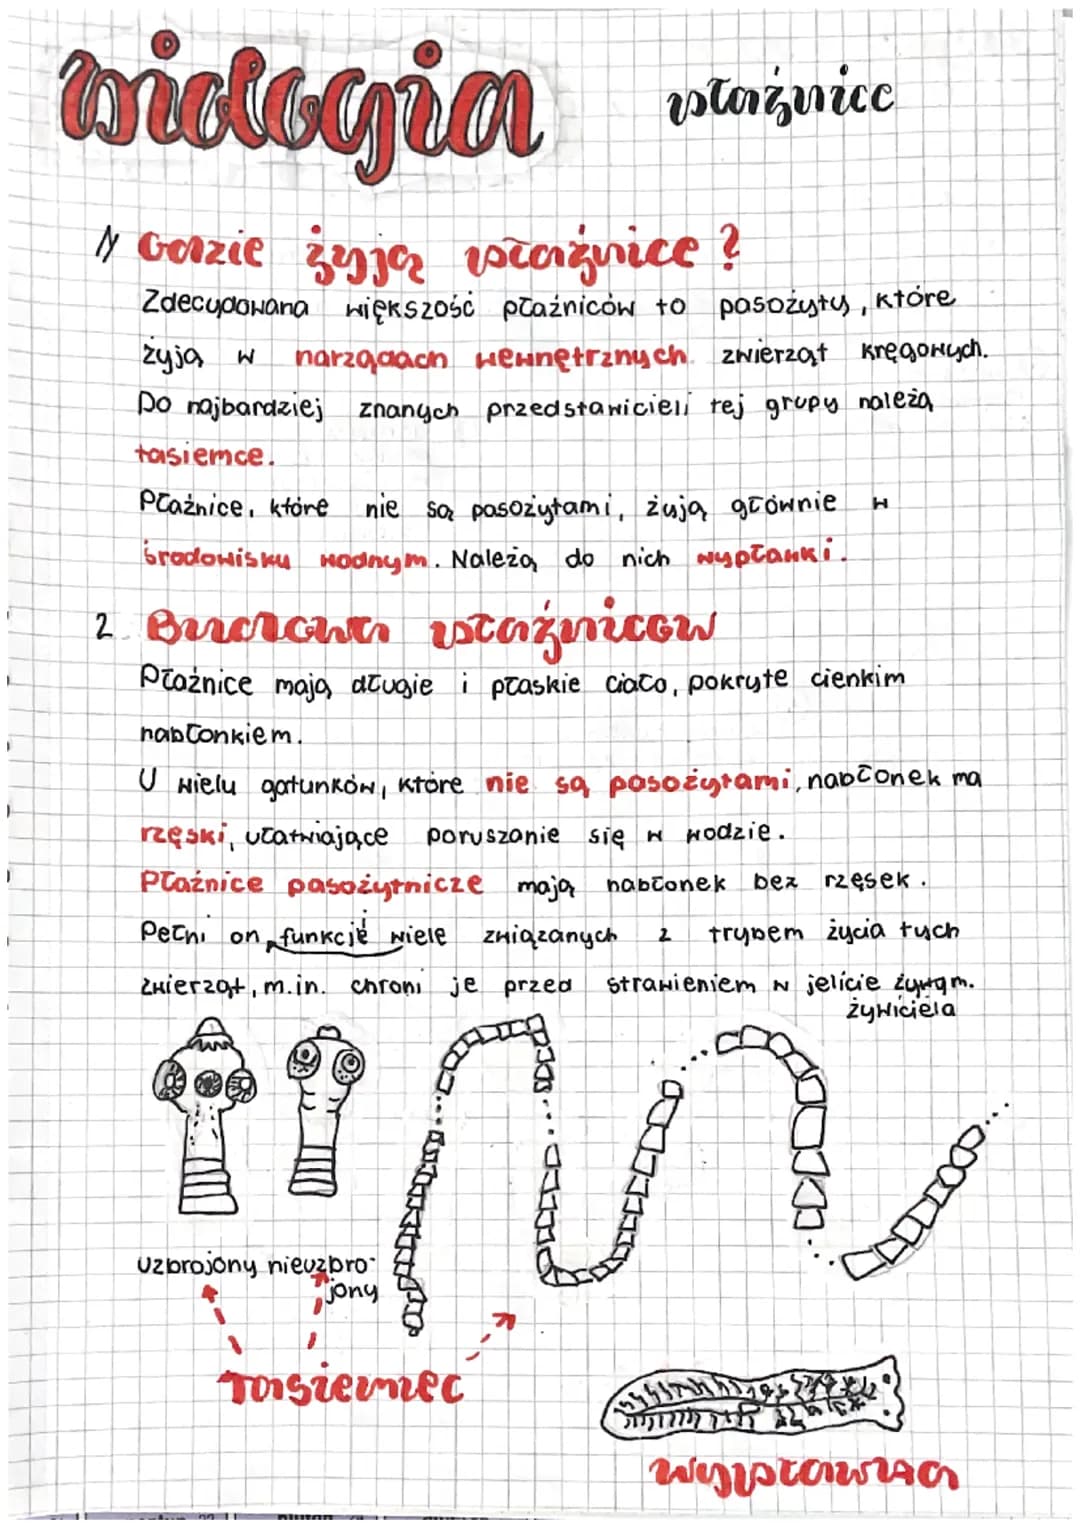 biologia
płaźnice
1/ Gdzie żyją płaźnice?
Zdecydowana większość płaźniców to pasożyty, które
żyją w narządach wewnętrznych zwierząt kręgowych.
Do najbardziej znanych przedstawicieli tej grupy należą
tasiemce.
Płaźnice, które nie są pasożytami, żują głównie w
środowisku wodnym. Należą do nich wypławki.
2. Budowa płaźniców
Płaźnice mają długie i płaskie ciało, pokryte cienkim
nabłonkiem.
U wielu gatunków, które nie są pasożytami, nabłonek ma
rzęski, ułatwiające poruszanie się w wodzie.
Płaźnice pasożytnicze mają nabłonek bez rzęsek.
Pełni on funkcje wiele związanych z trybem życia tych
zwierząt, m.in. chroni je przed strawieniem w jelicie
żywiciela
uzbrojony nieuzbro-
jony
Tasiemiec
Wypławka